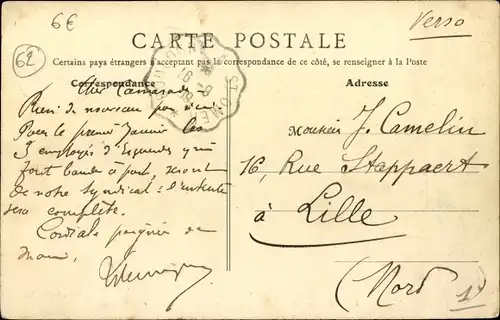 6€
Verso
62
CARTE POSTALE
Certains pays étrangers n'acceptant pas la correspondance de ce côté, se renseigner à la Poste
Correspondance
Adresse
Cher Camarade
Rien de nouveau par ici
Pour le premier Janvier les
3 employés d'Esquerdes qui
font bande à part, seront
de notre Syndicat : l'entente
sera complète.
Cordiale poignée de
main,
Monsieur J. Camelin
16, Rue Stappaert
à Lille
(Nord)